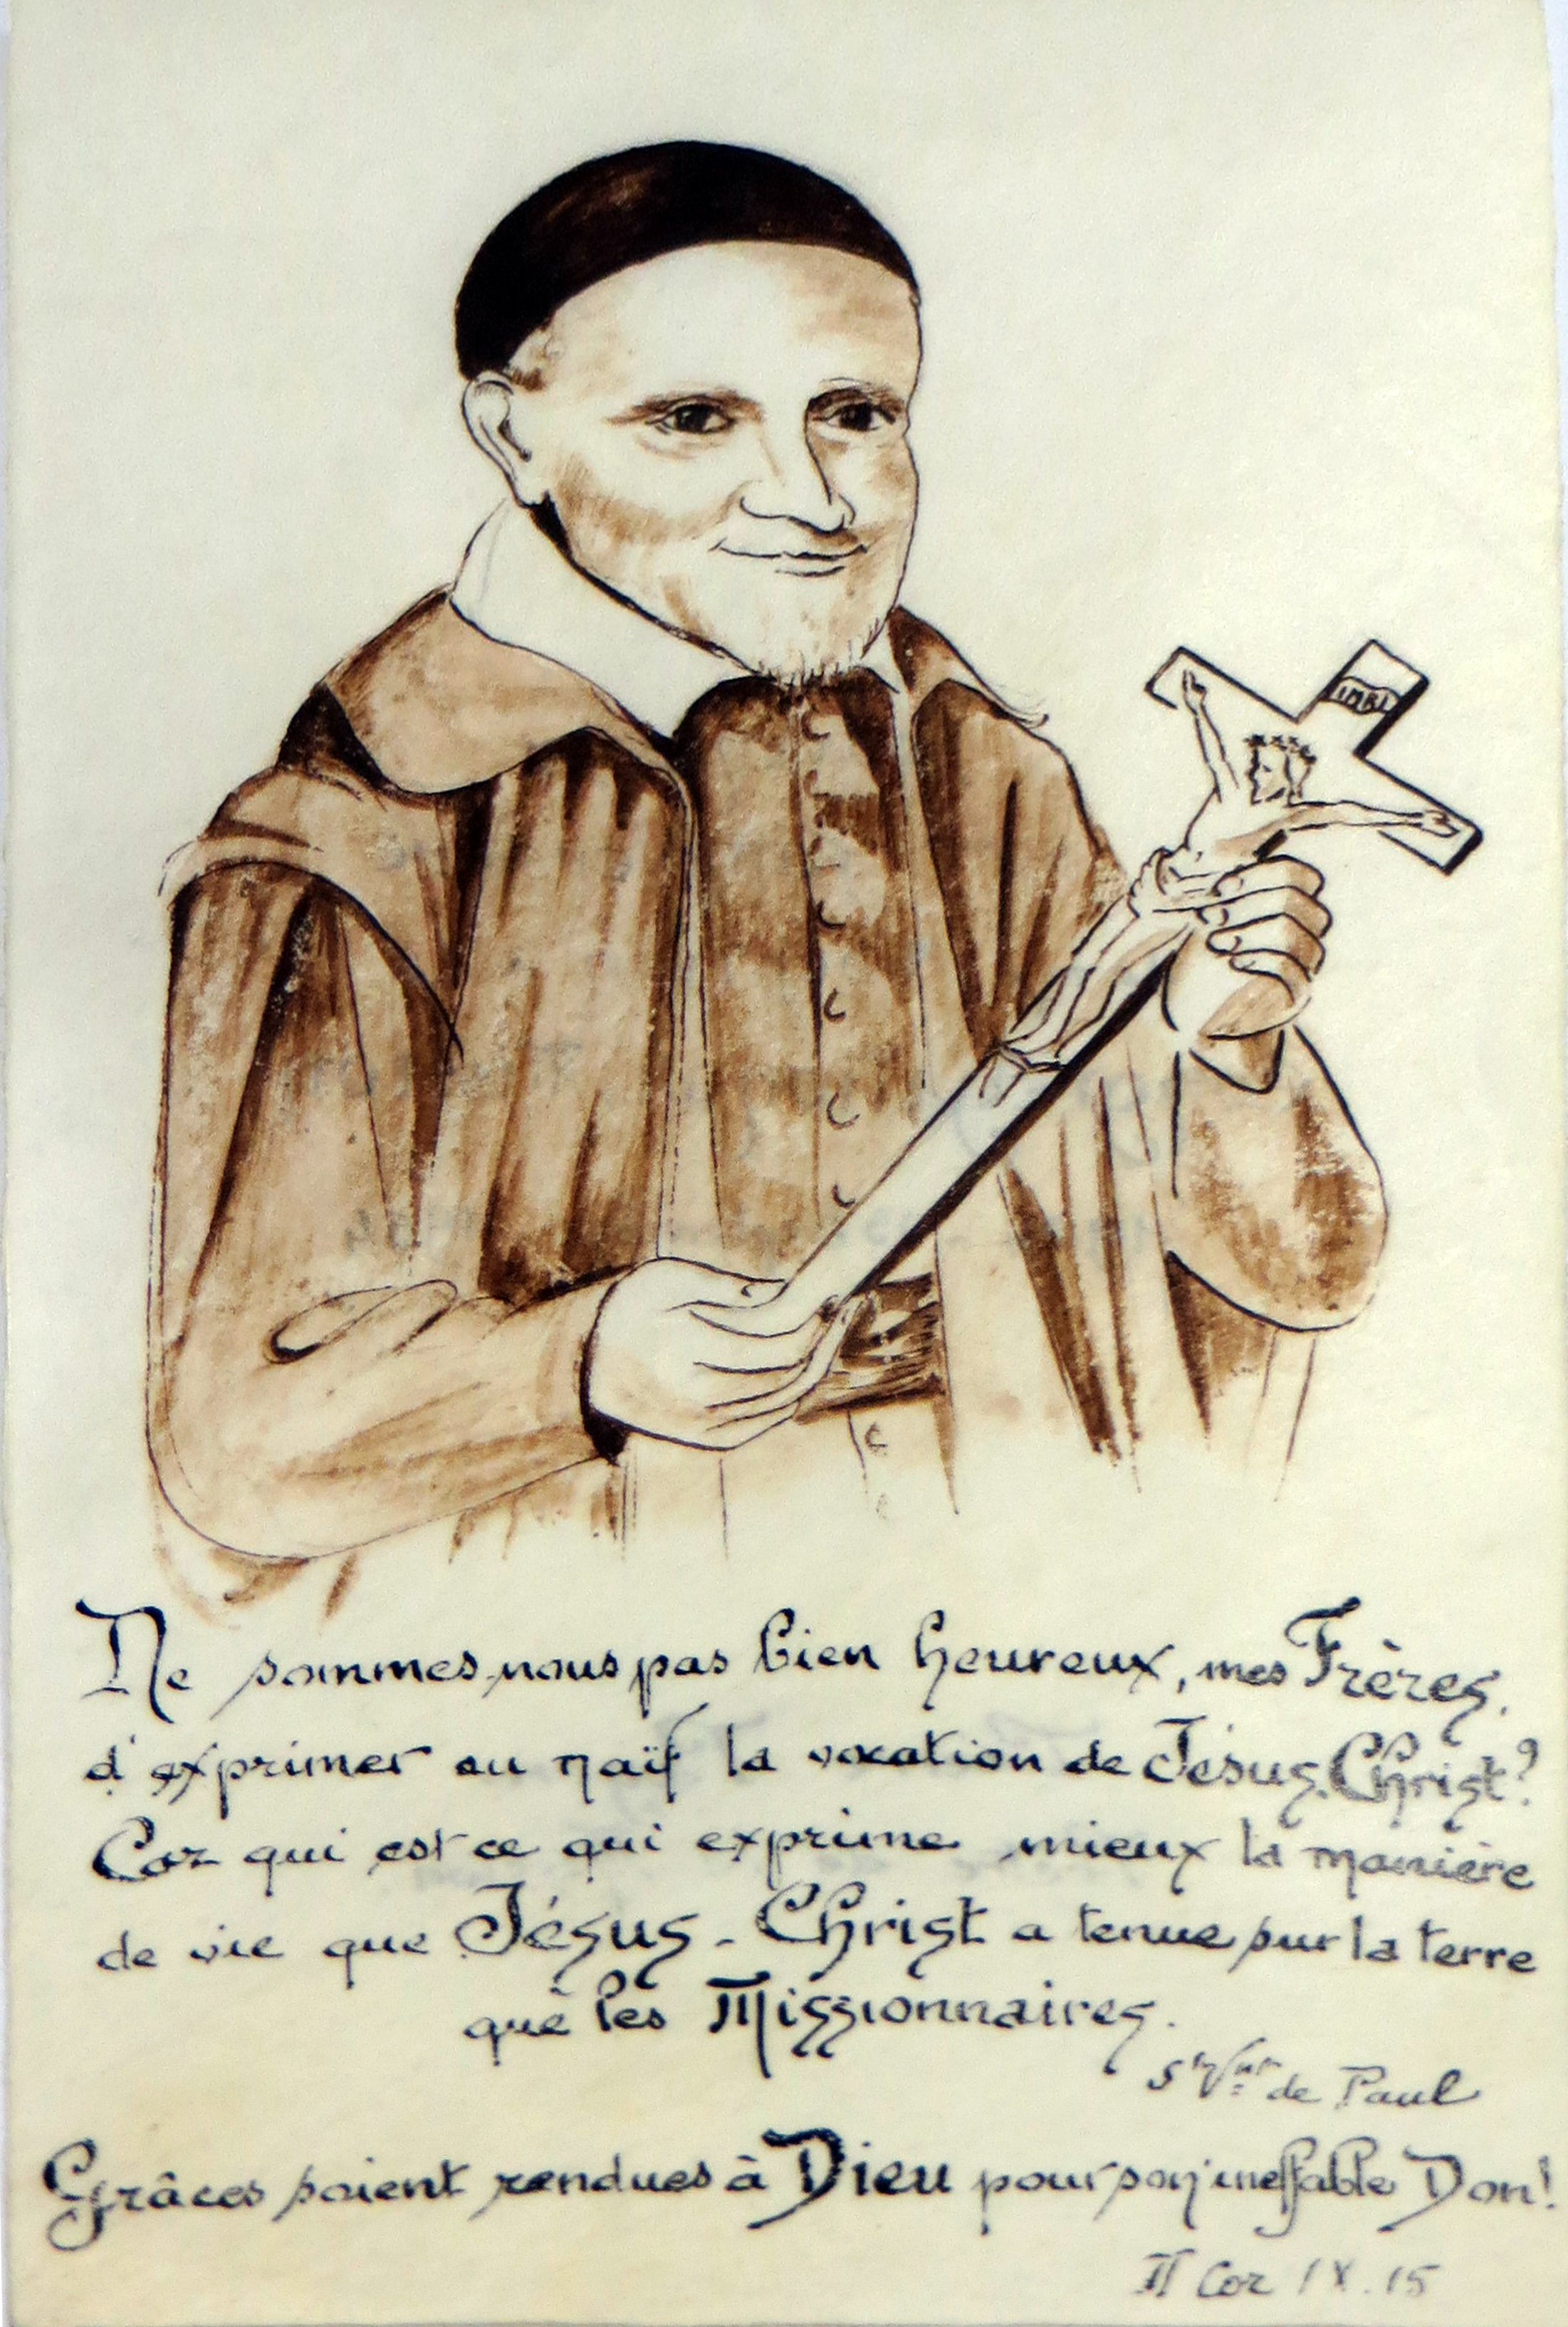 INRI
Ne sommes-nous pas bien heureux, mes Frères,
d'exprimer au naïf la vocation de Jésus-Christ?
Car qui est ce qui exprime mieux la manière
de vie que Jésus-Christ a tenue sur la terre
que les Missionnaires.
St Vnt de Paul
Grâces soient rendues à Dieu pour son ineffable Don!
II Cor IX.15